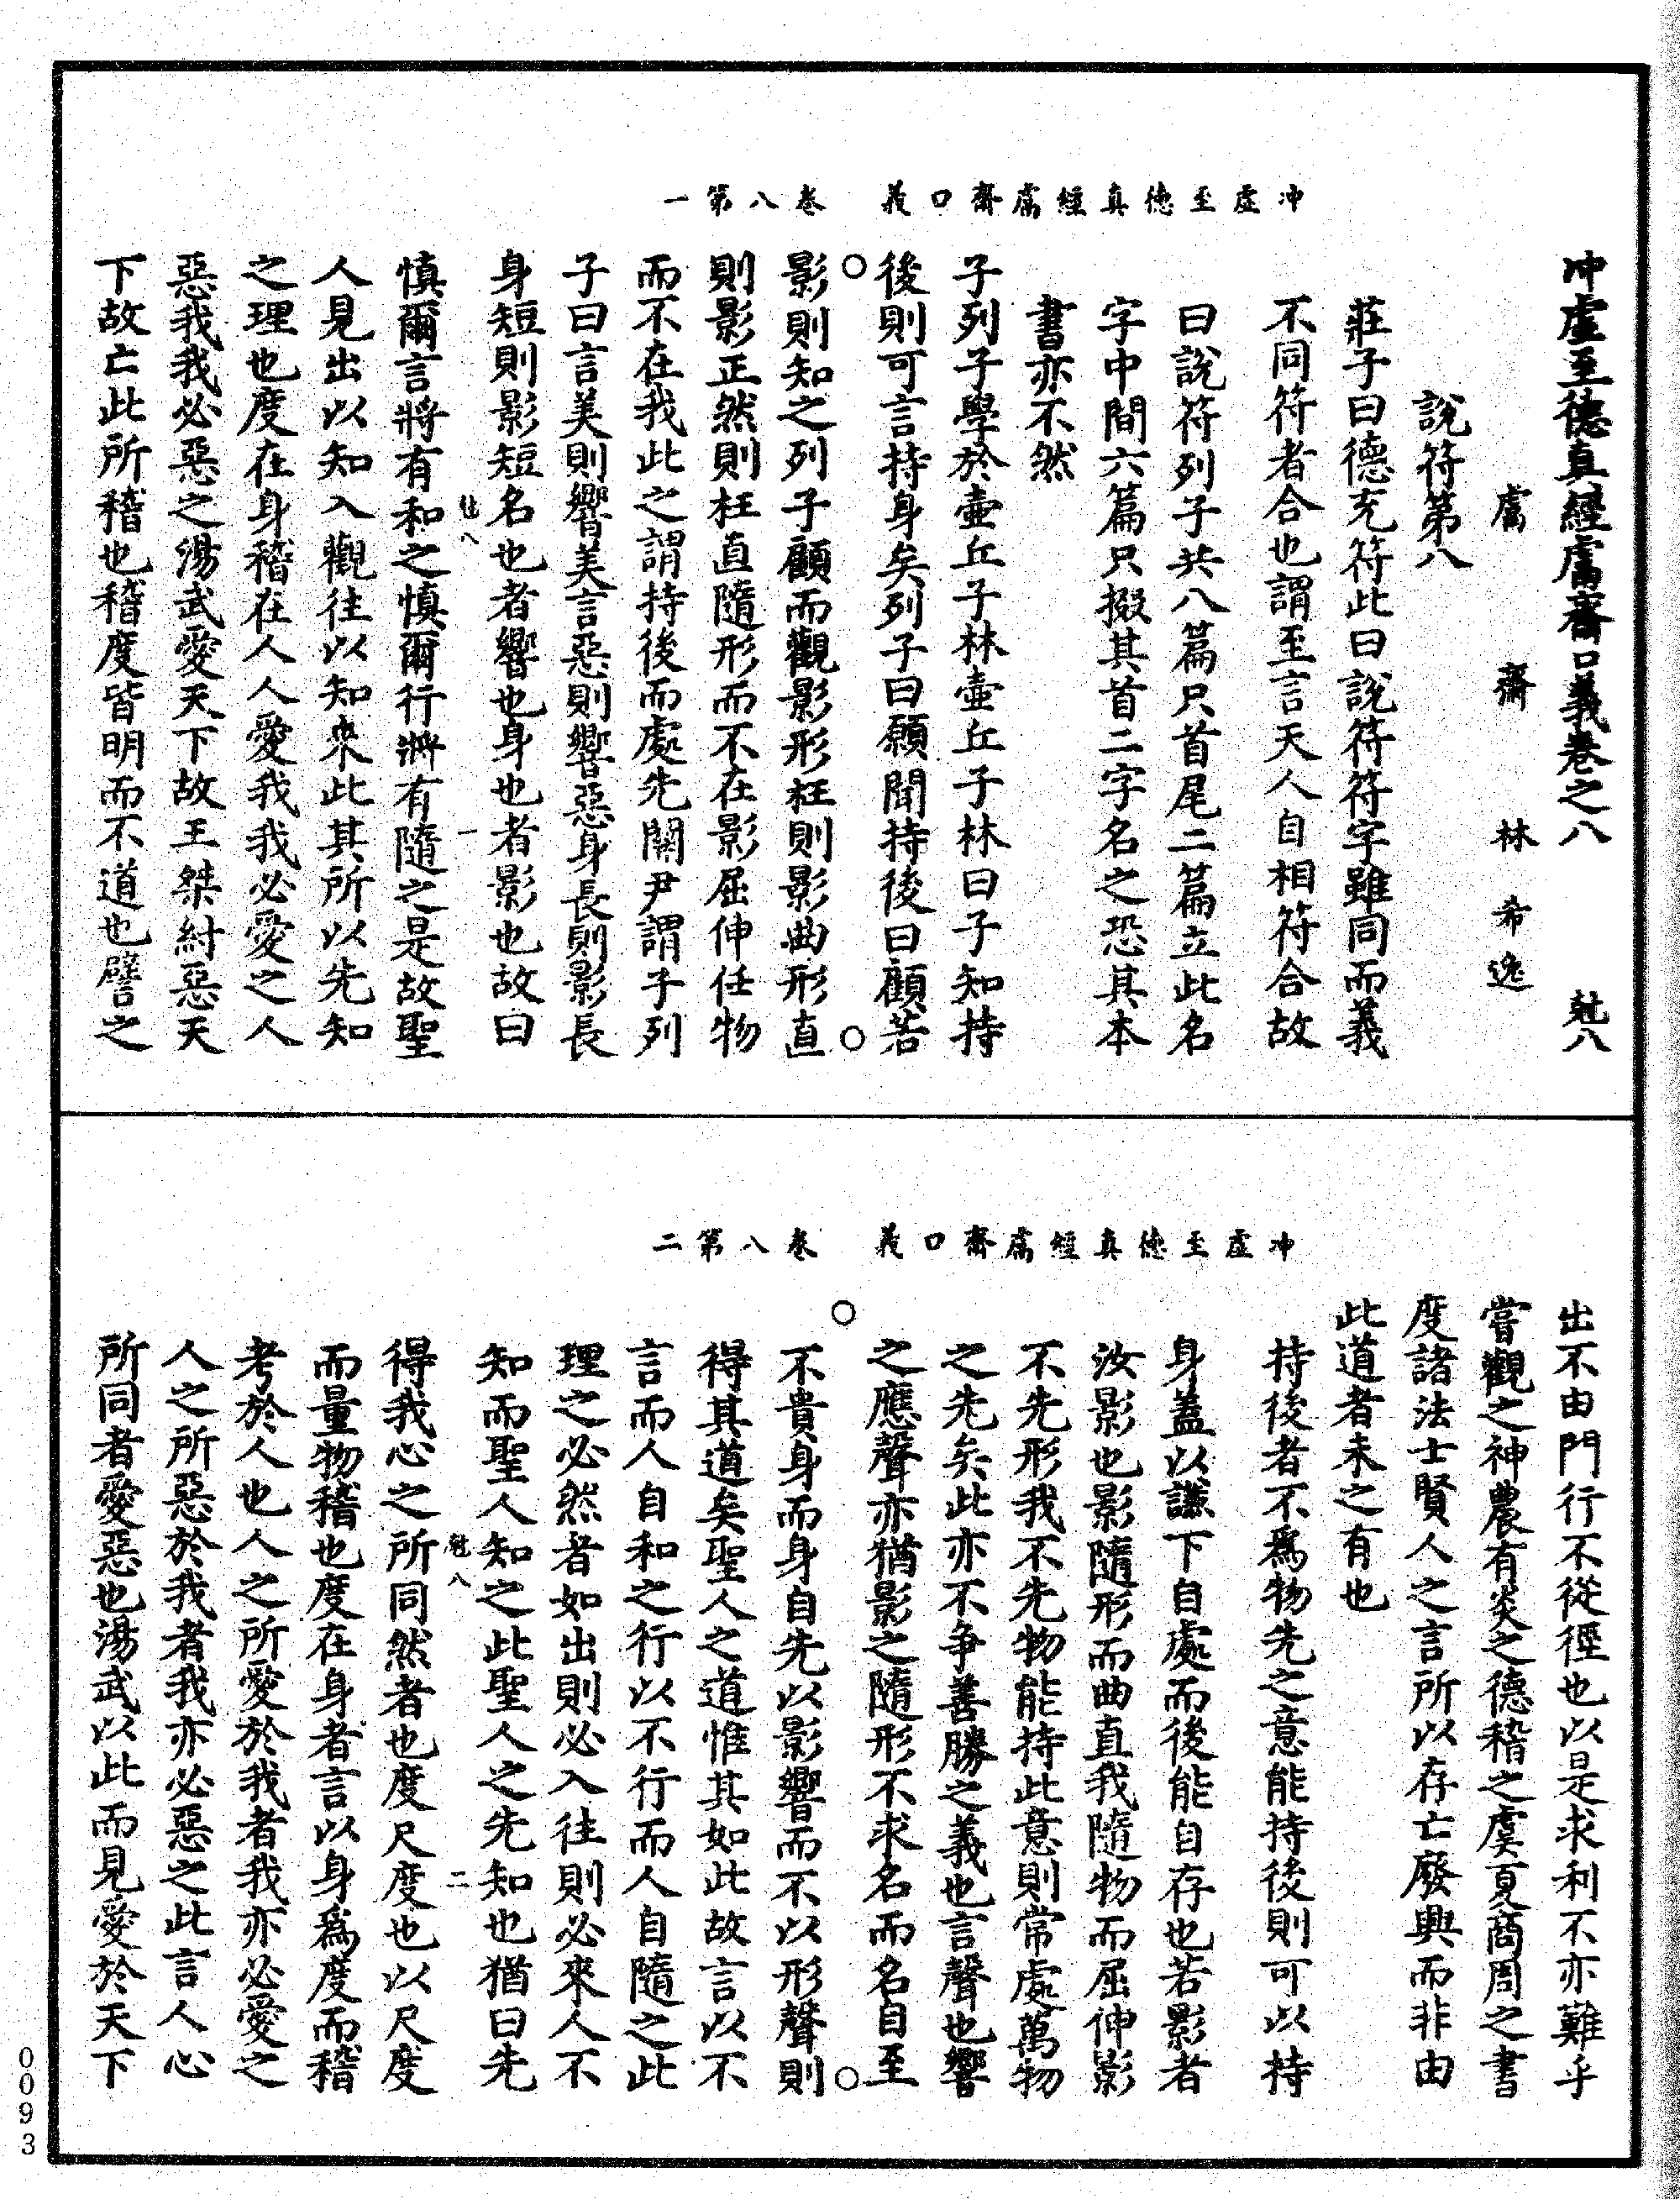 冲虚至德真經鬳齋口義　卷八第一
冲虚至德真經鬳齋口義卷之八　尅八
鬳齋林希逸
說符第八
莊子曰德充符此曰說符符字雖同而義
不同符者合也謂至言天人自相符合故
曰說符列子共八篇只首尾二篇立此名
字中間六篇只掇其首二字名之恐其本
書亦不然
子列子學於壺丘子林壺丘子林曰子知持
後則可言持身矣列子曰願聞持後曰顧若
影則知之列子顧而觀影形枉則影曲形直
則影正然則枉直隨形而不在影屈伸任物
而不在我此之謂持後而處先關尹謂子列
子曰言美則響美言惡則響惡身長則影長
身短則影短名也者響也身也者影也故曰
尅八　一
慎爾言將有和之慎爾行將有隨之是故聖
人見出以知入觀往以知來此其所以先知
之理也度在身稽在人人愛我我必愛之人
惡我我必惡之湯武愛天下故王桀紂惡天
下故亡此所稽也稽度皆明而不道也譬之
冲虚至德真經鬳齋口義　卷八第二
出不由門行不從徑也以是求利不亦難乎
嘗觀之神農有炎之德稽之虞夏商周之書
度諸法士賢人之言所以存亡廢興而非由
此道者未之有也
持後者不爲物先之意能持後則可以持
身蓋以謙下自處而後能自存也若影者
汝影也影隨形而曲直我隨物而屈伸影
不先形我不先物能持此意則常處萬物
之先矣此亦不争善勝之義也言聲也響
之應聲亦猶影之隨形不求名而名自至
不貴身而身自先以影響而不以形聲則
得其道矣聖人之道惟其如此故言以不
言而人自和之行以不行而人自隨之此
理之必然者如出則必入往則必來人不
知而聖人知之此聖人之先知也猶曰先
尅八　二
得我心之所同然者也度尺度也以尺度
而量物稽也度在身者言以身爲度而稽
考於人也人之所愛於我者我亦必愛之
人之所惡於我者我亦必惡之此言人心
所同者愛惡也湯武以此而見愛於天下
0093